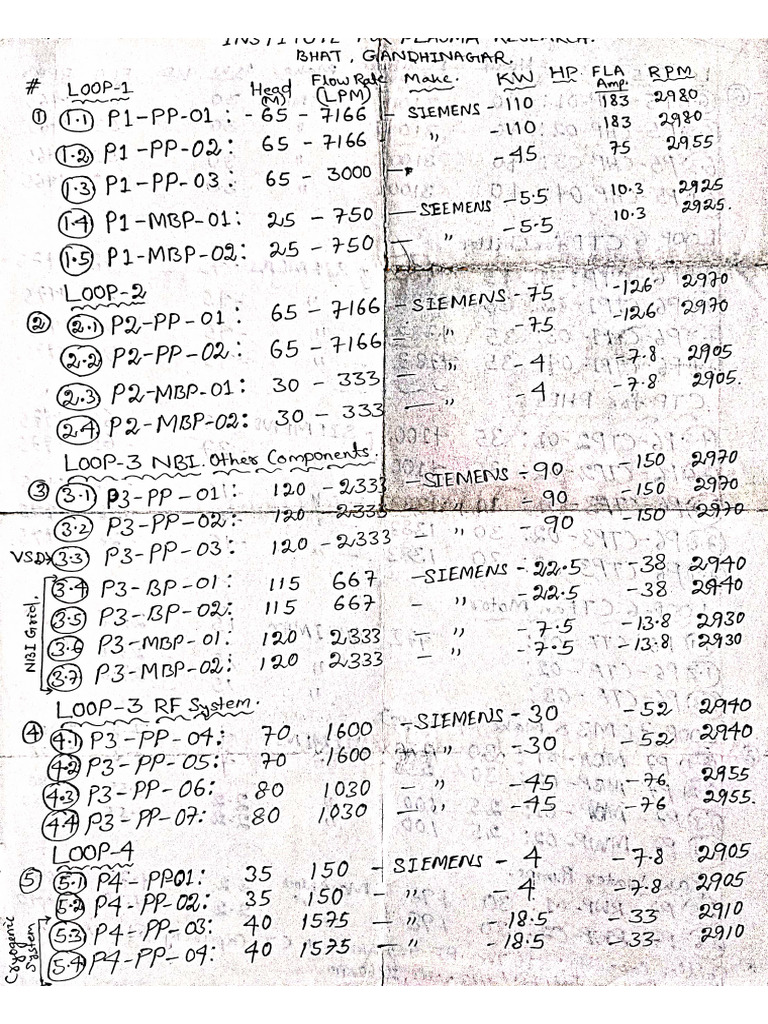 INSTITUTE FOR PLASMA RESEARCH.
BHAT, GANDHINAGAR.
# LOOP-1 Head (M) Flow Rate (LPM) Make. KW HP FLA Amp. RPM
① 1.1 P1-PP-01: - 65 - 7166 - SIEMENS - 110 183 2980
1.2 P1-PP-02: 65 - 7166 " - 110 183 2980
1.3 P1-PP-03: 65 - 3000 - 45 75 2955
1.4 P1-MBP-01: 25 - 750 - SIEMENS - 5.5 10.3 2925
1.5 P1-MBP-02: 25 - 750 - " - 5.5 10.3 2925.
LOOP-2
② 2.1 P2-PP-01: 65 - 7166 - SIEMENS - 75 - 126 2970
2.2 P2-PP-02: 65 - 7166 - " - 75 - 126 2970
2.3 P2-MBP-01: 30 - 333 - " - 4 - 7.8 2905
2.4 P2-MBP-02: 30 - 333 - " - 4 - 7.8 2905.
LOOP-3 NBI. Other Components.
③ 3.1 P3-PP-01: 120 - 2333 - SIEMENS - 90 - 150 2970
3.2 P3-PP-02: 120 - 2333 " - 90 - 150 2970
VSD 3.3 P3-PP-03: 120 - 2333 " - 90 - 150 2970
3.4 P3-BP-01: 115 667 - SIEMENS - 22.5 - 38 2940
3.5 P3-BP-02: 115 667 " - 22.5 - 38 2940
3.6 P3-MBP-01: 120 2333 - " - 7.5 - 13.8 2930
3.7 P3-MBP-02: 120 2333 - " - 7.5 - 13.8 2930
NBI Grid.
LOOP-3 RF System.
④ 4.1 P3-PP-04: 70 1600 - SIEMENS - 30 - 52 2940
4.2 P3-PP-05: 70 1600 - " - 30 - 52 2940
4.3 P3-PP-06: 80 1030 - " - 45 - 76 2955
4.4 P3-PP-07: 80 1030 - " - 45 - 76 2955.
LOOP-4
⑤ 5.1 P4-PP01: 35 150 - SIEMENS - 4 - 7.8 2905
5.2 P4-PP-02: 35 150 - " - 4 - 7.8 2905
5.3 P4-PP-03: 40 1575 - " - 18.5 - 33 2910
5.4 P4-PP-04: 40 1575 - " - 18.5 - 33 2910
Cryogenic
System